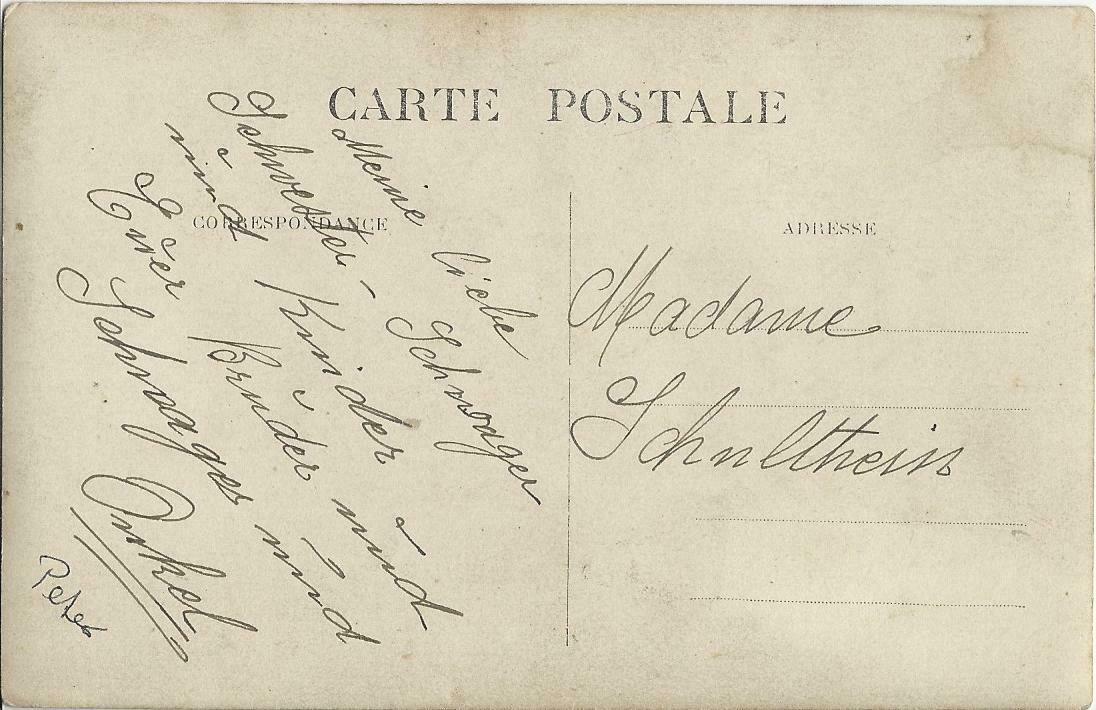 CARTE POSTALE
CORRESPONDANCE
ADRESSE
Meine liebe
Schwester - Schwager
und Kinder
Euer Bruder und
Schwager und
Onkel
Peter
Madame
Schultheis